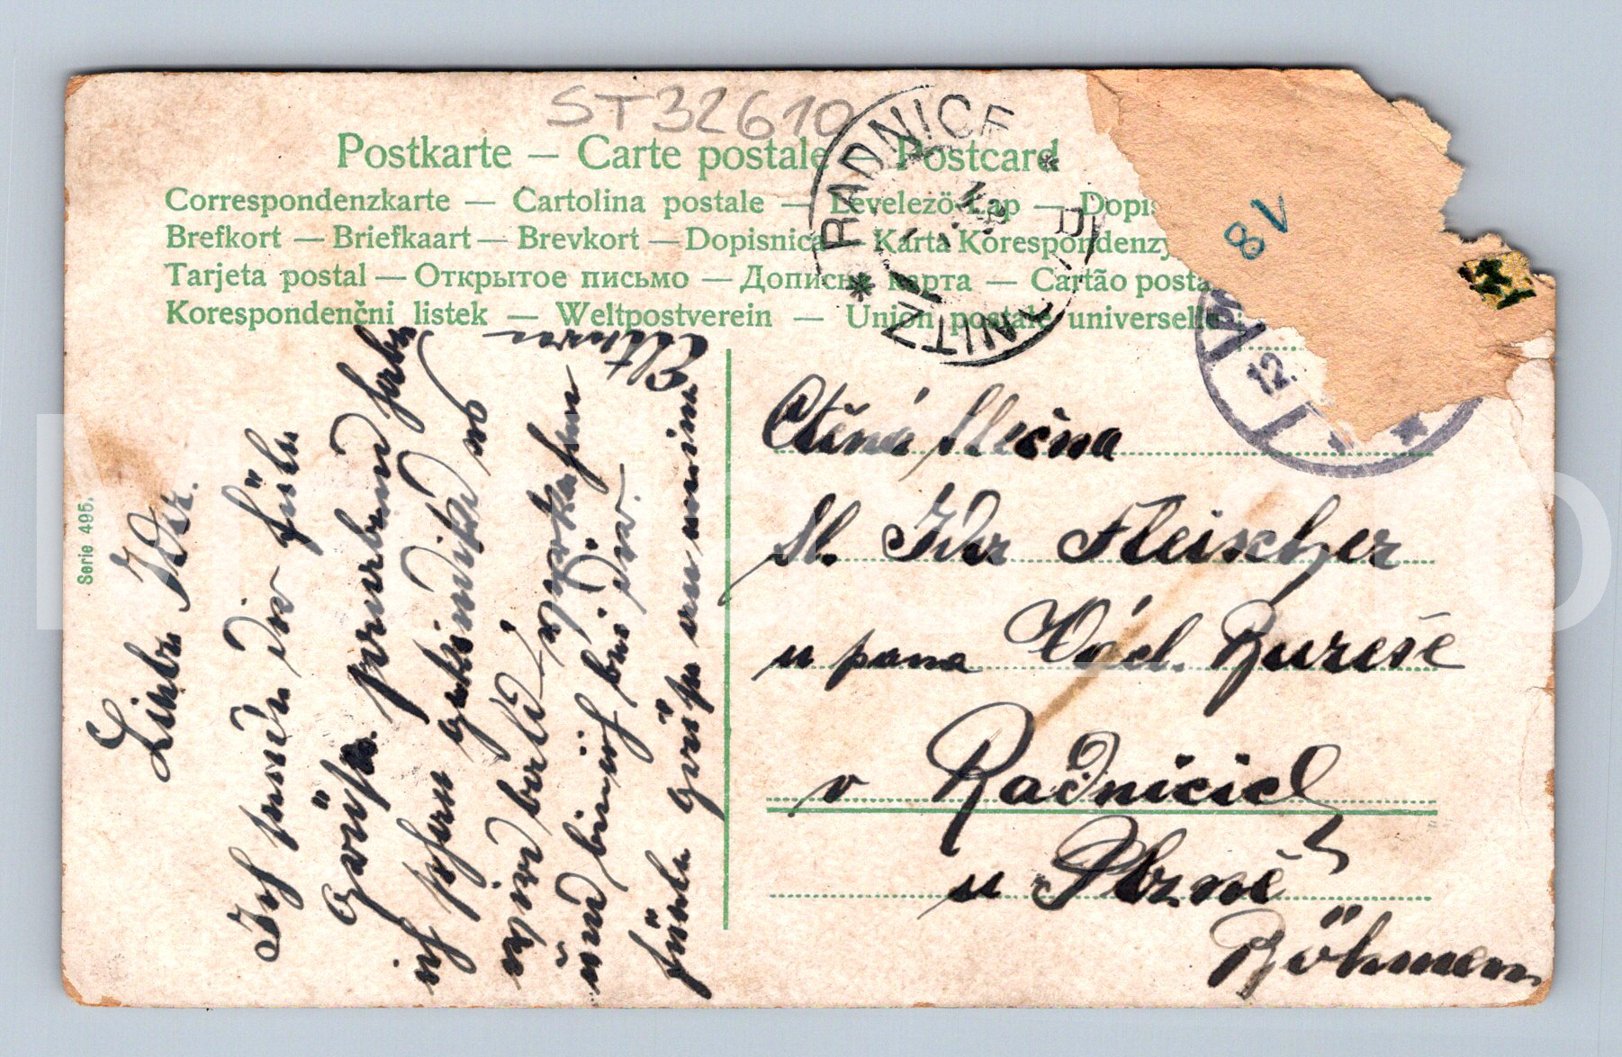 ST32610
Postkarte — Carte postale — Postcard
Correspondenzkarte — Cartolina postale — Levelező-Lap — Dopis
Brefkort — Briefkaart — Brevkort — Dopisnica — Karta Korespondenzy
Tarjeta postal — Открытое письмо — Дописна карта — Cartão posta
Korespondenční listek — Weltpostverein — Union postale universelle
RADNICE
8V
12.
Serie 495.
Liebe Ida.
Ich sende dir füle
Grüsse
ich schon
wird bald
und bei dir.
füle grüsse an meine
Eltern
Ctěná slečna
Sl. Ida Fleischer
u pana Václ. Bureše
v Radnicích
u Plzně
Böhmen